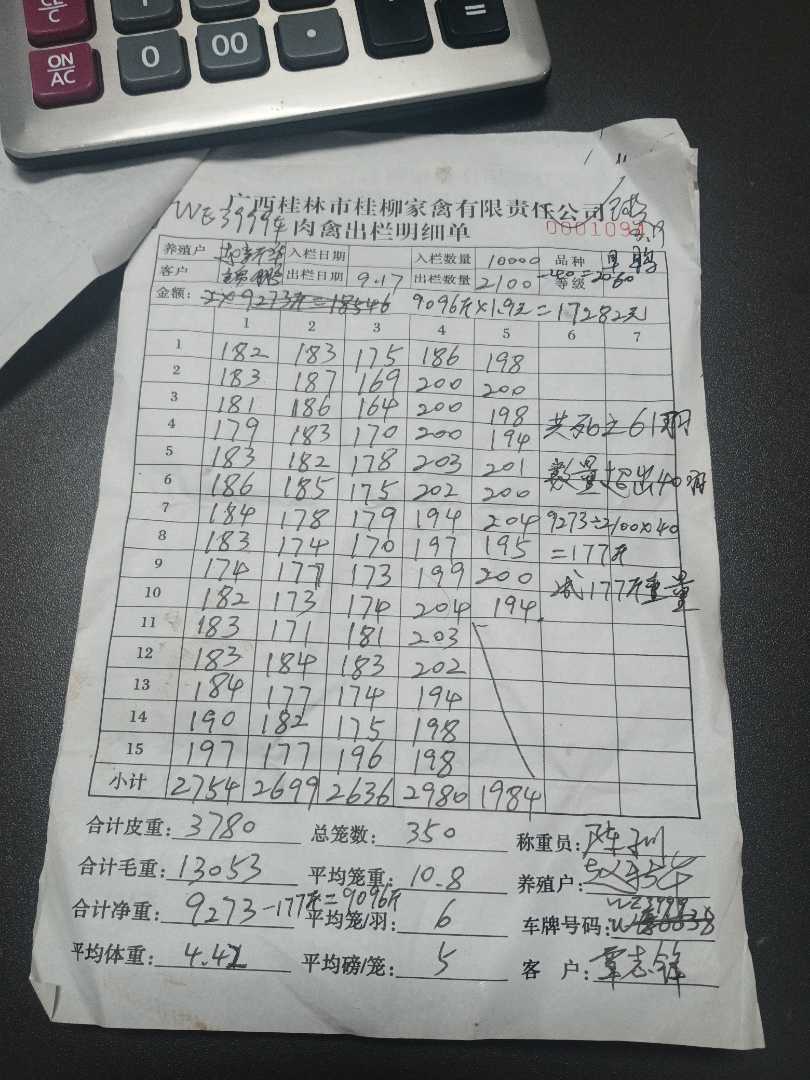 CE/C
0 00 · =
ON/AC
广西桂林市桂柳家禽有限责任公司
WE3999车 肉禽出栏明细单 0001094
养殖户 入栏日期 入栏数量 10000 品种
客户 出栏日期 9.17 出栏数量 2100-40=2060 等级
金额: 2×9273斤=18546 9096斤×1.9元=17282元
1 2 3 4 5 6 7
1 182 183 175 186 198
2 183 187 169 200 200
3 181 186 164 200 198 共死亡61羽
4 179 183 170 200 194
5 183 182 178 203 201 数量超出40羽
6 186 185 175 202 200
7 184 178 179 194 204 9273÷2100×40
8 183 174 170 197 195 =177斤
9 174 177 173 199 200 减177斤重量
10 182 173 174 204 194
11 183 171 181 203
12 183 184 183 202
13 184 177 174 194
14 190 182 175 198
15 197 177 196 198
小计 2754 2699 2636 2980 1984
合计皮重: 3780 总笼数: 350 称重员:
合计毛重: 13053 平均笼重: 10.8 养殖户:
合计净重: 9273-177斤=9096斤 平均笼/羽: 6 车牌号码: WE3999
平均体重: 4.42 平均磅/笼: 5 客 户: 覃志锋